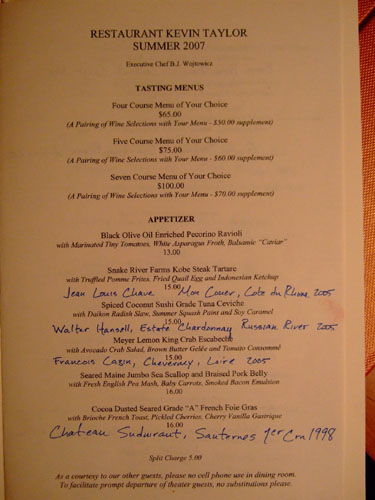 RESTAURANT KEVIN TAYLOR
SUMMER 2007
Executive Chef B.J. Wojtowicz
TASTING MENUS
Four Course Menu of Your Choice
$65.00
(A Pairing of Wine Selections with Your Menu - $50.00 supplement)
Five Course Menu of Your Choice
$75.00
(A Pairing of Wine Selections with Your Menu - $60.00 supplement)
Seven Course Menu of Your Choice
$100.00
(A Pairing of Wine Selections with Your Menu - $70.00 supplement)
APPETIZER
Black Olive Oil Enriched Pecorino Ravioli
with Marinated Tiny Tomatoes, White Asparagus Froth, Balsamic "Caviar"
13.00
Snake River Farms Kobe Steak Tartare
with Truffled Pomme Frites, Fried Quail Egg and Indonesian Ketchup
15.00
Jean Louis Chave Mon Coeur, Cote du Rhone 2005
Spiced Coconut Sushi Grade Tuna Ceviche
with Daikon Radish Slaw, Summer Squash Paint and Soy Caramel
15.00
Walter Hansell, Estate Chardonnay Russian River 2005
Meyer Lemon King Crab Escabeche
with Avocado Crab Salad, Brown Butter Gelée and Tomato Consommé
15.00
Francois Cazin, Cheverny, Loire 2005
Seared Maine Jumbo Sea Scallop and Braised Pork Belly
with Fresh English Pea Mash, Baby Carrots, Smoked Bacon Emulsion
16.00
Cocoa Dusted Seared Grade "A" French Foie Gras
with Brioche French Toast, Pickled Cherries, Cherry Vanilla Gastrique
16.00
Chateau Suduiraut, Sauternes 1er Cru 1998
Split Charge 5.00
As a courtesy to our other guests, please no cell phone use in dining room.
To facilitate prompt departure of theater guests, no substitutions please.